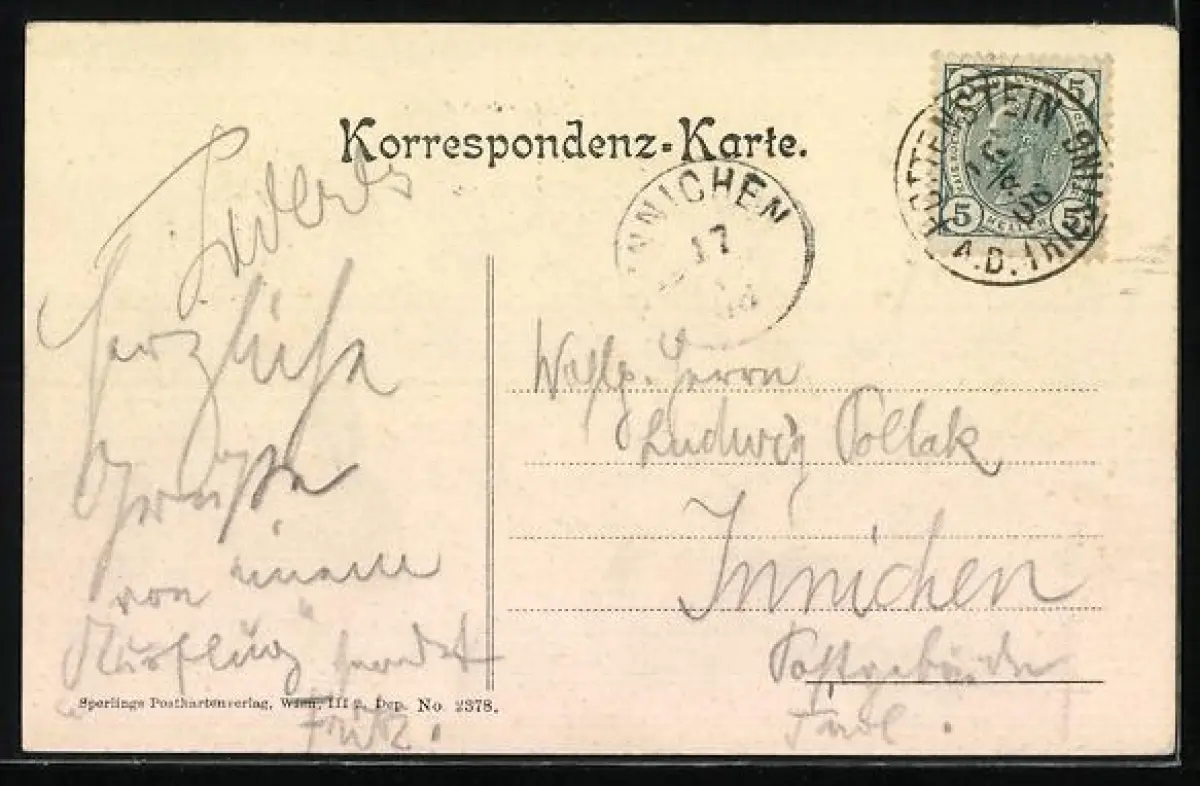 Korrespondenz-Karte.
5 5
5 5
HELLER
POTTENSTEIN
A.D. TRIESTING
16/8 06
INNICHEN
17
Herzliche
Grüße
von einem
Ausflug sendet
Fritz.
Wohlg. Herrn
Ludwig Pollak
Innichen
Postgebäude
Tirol.
Sperlings Postkartenverlag, Wien, III 2. Dep. No. 2378.